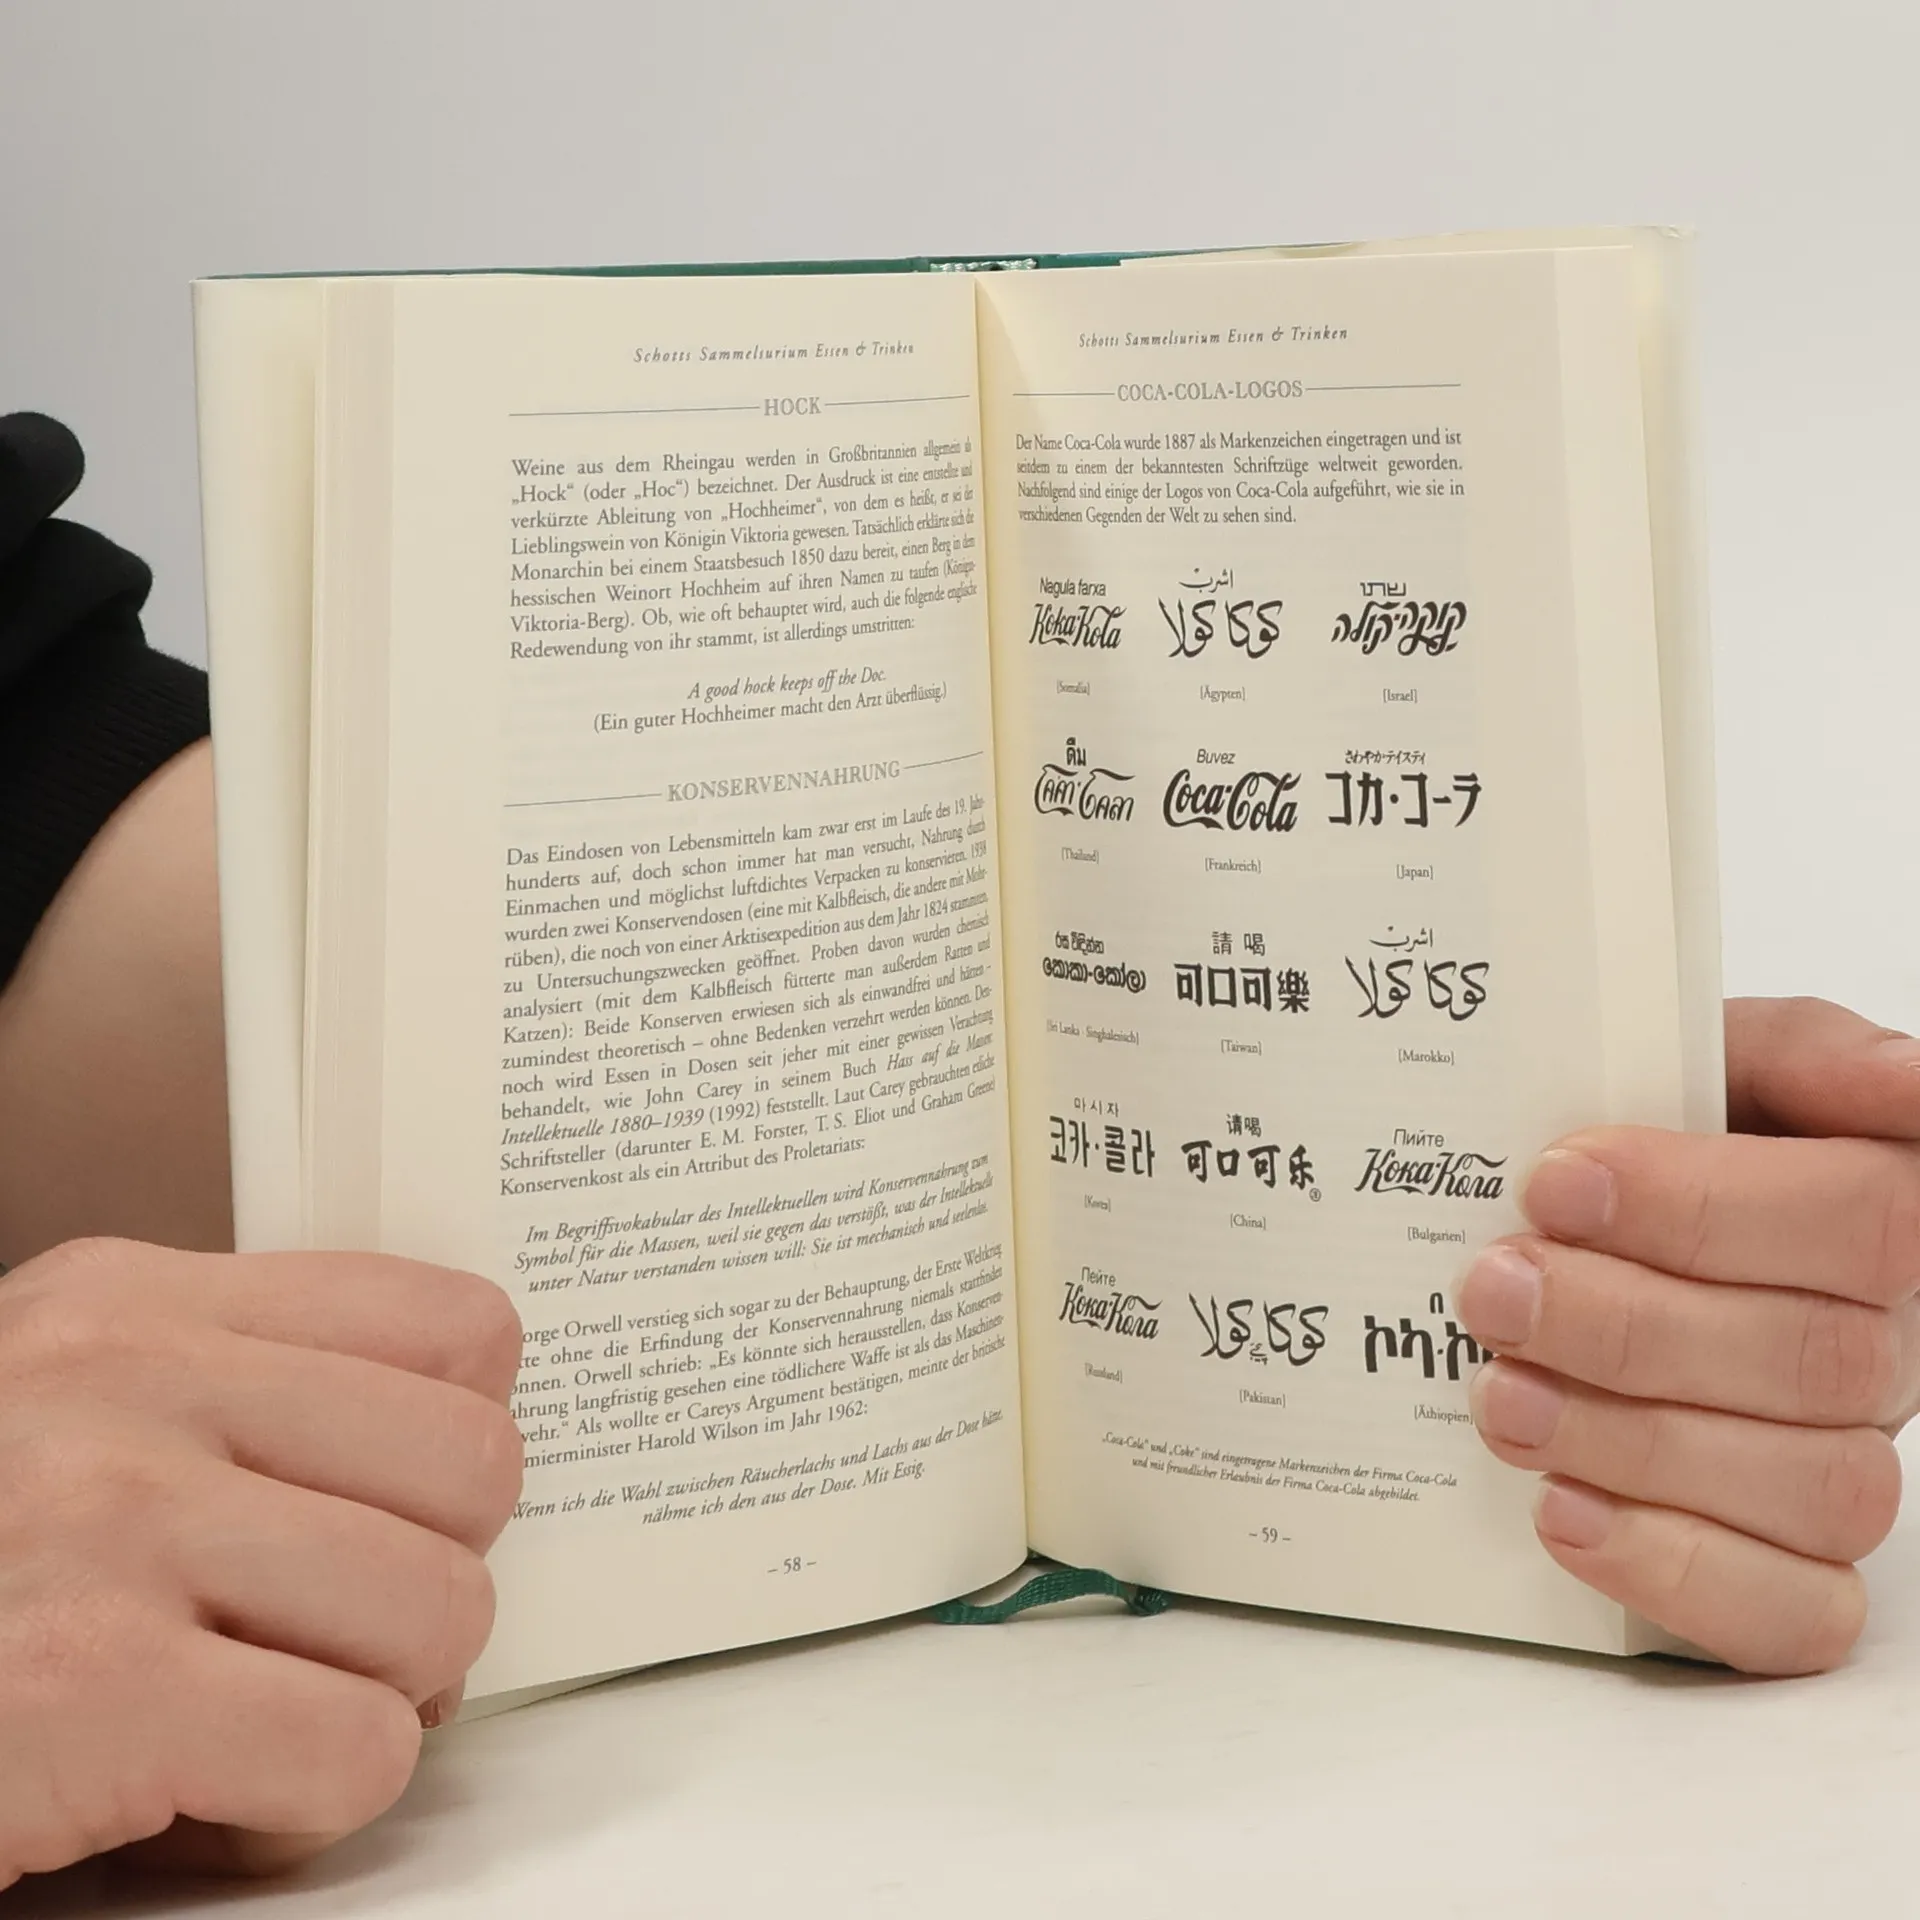 Schotts Sammelsurium Essen & Trinken
HOCK
Weine aus dem Rheingau werden in Großbritannien allgemein als
„Hock“ (oder „Hoc“) bezeichnet. Der Ausdruck ist eine entstellte und
verkürzte Ableitung von „Hochheimer“, von dem es heißt, er sei der
Lieblingswein von Königin Viktoria gewesen. Tatsächlich erklärte sich die
Monarchin bei einem Staatsbesuch 1850 dazu bereit, einen Berg in dem
hessischen Weinort Hochheim auf ihren Namen zu taufen (Königin-
Viktoria-Berg). Ob, wie oft behauptet wird, auch die folgende englische
Redewendung von ihr stammt, ist allerdings umstritten:
A good hock keeps off the Doc.
(Ein guter Hochheimer macht den Arzt überflüssig.)
KONSERVENNAHRUNG
Das Eindosen von Lebensmitteln kam zwar erst im Laufe des 19. Jahr-
hunderts auf, doch schon immer hat man versucht, Nahrung durch
Einmachen und möglichst luftdichtes Verpacken zu konservieren. 1938
wurden zwei Konservendosen (eine mit Kalbfleisch, die andere mit Mohr-
rüben), die noch von einer Arktisexpedition aus dem Jahr 1824 stammten,
zu Untersuchungszwecken geöffnet. Proben davon wurden chemisch
analysiert (mit dem Kalbfleisch fütterte man außerdem Ratten und
Katzen): Beide Konserven erwiesen sich als einwandfrei und hätten –
zumindest theoretisch – ohne Bedenken verzehrt werden können. Den-
noch wird Essen in Dosen seit jeher mit einer gewissen Verachtung
behandelt, wie John Carey in seinem Buch Hass auf die Massen:
Intellektuelle 1880–1939 (1992) feststellt. Laut Carey gebrauchten etliche
Schriftsteller (darunter E. M. Forster, T. S. Eliot und Graham Greene)
Konservenkost als ein Attribut des Proletariats:
Im Begriffsvokabular des Intellektuellen wird Konservennahrung zum
Symbol für die Massen, weil sie gegen das verstößt, was der Intellektuelle
unter Natur verstanden wissen will: Sie ist mechanisch und seelenlos.
orge Orwell verstieg sich sogar zu der Behauptung, der Erste Weltkrieg
tte ohne die Erfindung der Konservennahrung niemals stattfinden
nnen. Orwell schrieb: „Es könnte sich herausstellen, dass Konserven-
ahrung langfristig gesehen eine tödlichere Waffe ist als das Maschinen-
wehr.“ Als wollte er Careys Argument bestätigen, meinte der britische
mierminister Harold Wilson im Jahr 1962:
Wenn ich die Wahl zwischen Räucherlachs und Lachs aus der Dose hätte,
nähme ich den aus der Dose. Mit Essig.
– 58 –
Schotts Sammelsurium Essen & Trinken
COCA-COLA-LOGOS
Der Name Coca-Cola wurde 1887 als Markenzeichen eingetragen und ist
seitdem zu einem der bekanntesten Schriftzüge weltweit geworden.
Nachfolgend sind einige der Logos von Coca-Cola aufgeführt, wie sie in
verschiedenen Gegenden der Welt zu sehen sind.
Nagula farxa اشرب שתו
Koka-Kola كوكا كولا קוקה-קולה
[Somalia] [Ägypten] [Israel]
ดื่ม Buvez さわやか・テイスティ
โคคา-โคลา Coca-Cola コカ・コーラ
[Thailand] [Frankreich] [Japan]
රස විඳින්න 請 喝 اشرب
කොකා-කෝලා 可口可樂 كوكا كولا
[Sri Lanka - Singhalesisch] [Taiwan] [Marokko]
마시자 请喝 Пийте
코카·콜라 可口可乐® Кока-Кола
[Korea] [China] [Bulgarien]
Пейте
Кока-Кола کوکا کولا ኮካ·ኮ
[Russland] [Pakistan] [Äthiopien]
„Coca-Cola“ und „Coke“ sind eingetragene Markenzeichen der Firma Coca-Cola
und mit freundlicher Erlaubnis der Firma Coca-Cola abgebildet.
– 59 –